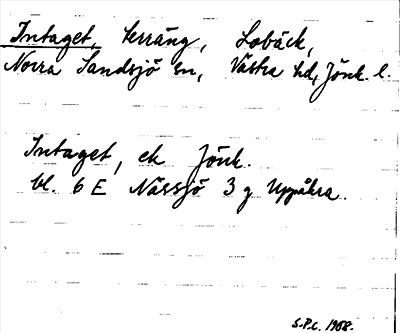 Intaget, terräng, Lobäck,
Norra Sandsjö sn, Västra hd, Jönk. l.
Intaget, ek Jönk.
bl. 6 E Nässjö 3 g Uppåkra.
S.P.C. 1968.